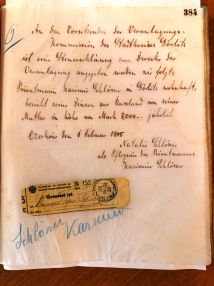 384
An den Vorsitzenden der Veranlagungs-
Kommission des Stadtkreises Görlitz
ist eine Steuererklärung zum Zwecke der
Veranlagung abgegeben worden wie folgt:
Privatmann Kasimir Schlöser in Görlitz wohnhaft,
bezieht eine Zinsen aus Russland von seiner
Mutter in Höhe von Mark 2000.– jährlich.
Februar 1905
Natalie Schlöser
als Pflegerin des Privatmannes
Kasimir Schlöser
152
Schlöser
Kasimir